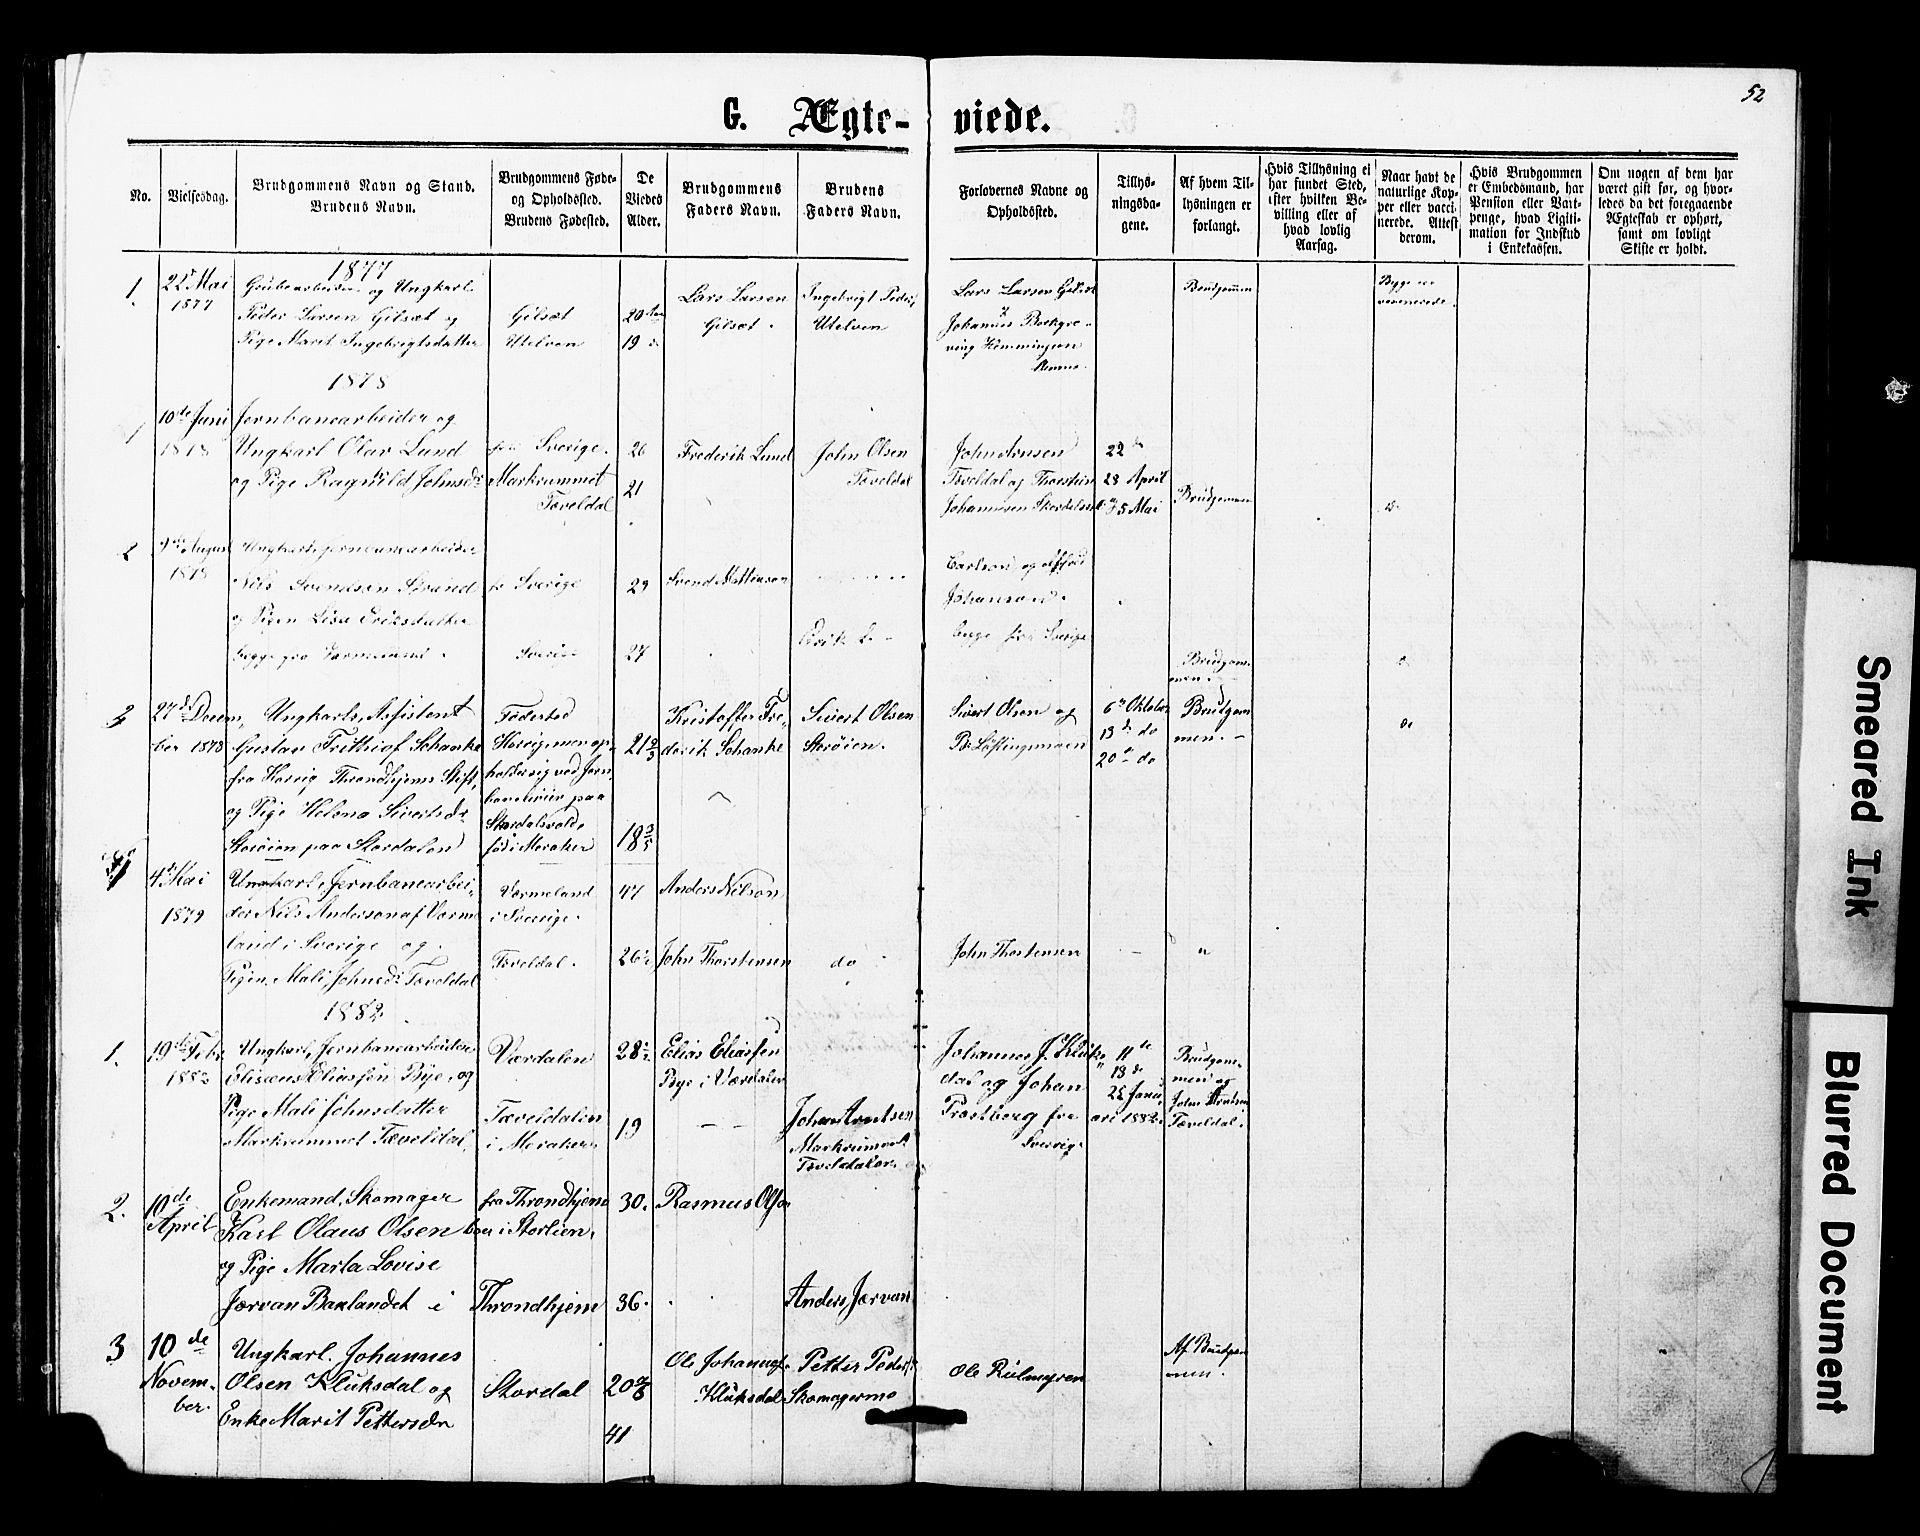 52
G. Ægte-viede.
No.
Vielsesdag.
Brudgommens Navn og Stand.
Brudens Navn.
Brudgommens Føde-
og Opholdssted.
Brudens Fødested.
De
Viedes
Alder.
Brudgommens
Faders Navn.
Brudens
Faders Navn.
Forlovernes Navne og
Opholdssted.
Tillys-
ningsda-
gene.
Af hvem Til-
lysningen er
forlangt.
Hvis Tillysning ei
har fundet Sted,
efter hvilken Be-
villing eller af
hvad lovlig
Aarsag.
Naar havt de
naturlige Kop-
per eller vacci-
nerede. Attest
derom.
Hvis Brudgommen
er Embedsmand, har
Pension eller Vart-
penge, hvad Ligiti-
mation for Indskud
i Enkekassen.
Om nogen af dem har
været gift før, og hvor-
ledes da det foregaaende
Ægteskab er ophørt,
samt om lovligt
Skifte er holdt.
1877
1. 21 Mai
1877
Grubearbeider og Ungkarl
Peder Larsen Gilsæt og
Pige Marit Ingebrigtsdatter
Gilsæt
Utelven
20
19
Lars Larsen
Gilsæt.
Ingebrigt Peders
Utelven
Lars Larsen Gilset
Johannes
Hemmingsen
Brudgommen
1878
1 10de Juni
1878
Jernbanearbeider og
Ungkarl Olav Lund
og Pige Ragnild Johnsdr
fra Sverige.
Markrummet
Tæveldal
26
21
Frederik Lund
John Olsen
Tæveldal
John Arnsen
Tæveldal og Thorstein
Johannesen
22
28 April
5 Mai
Brudgommen
do
2 9de August
1878
Ungkarl, Jernbanearbeider
Nils Svendsen Strand
og Pigen Lisa Eriksdatter
begge fra Varmeland.
fr Sverige
Sverige
29
27
Svend Mattiason
Erik
Carlson og
Johanson.
begge fra Sverige
Brudgom-
men.
do
3 27de Decem,
ber 1878
Ungkarl, Assistent
Gustav Frithiof Schanke
fra Horvig Throndhjems Stift,
og Pige Helena Sivertsdr
Storøien paa Stordalen
Fødested
Horvig, men op-
holder sig ved Jern,
baneanlæg paa
Stordalsvold,
fød i Meraker
21 2/3
18 3/5
Kristoffer Fre-
derik Schanke
Sivert Olsen
Storøien.
Sivert Olsen og
6te Oktober
13de do
20de do
Brudgom
men. -
do
1 4de Mai
1879
Ungkarl, Jernbanearbei-
der Nils Anderson af Værm
land i Sverige og
Pigen Mali Johnsdr Tæveldal
Værmeland
i Sverige.
Tæveldal.
47
26
Anders Nilson
John Thorstensen
do
John Thorstensen
-
"
1882.
1. 19de Febr.
1882
Ungkarl, Jernbanearbeider
Elisæus Eliassen Bye, og
Pige Mali Johnsdatter
Markrummet Tæveldal,
Værdalen
Tæveldalen
i Meraker
28
19
Elias Eliassen
Bye i Værdalen
- -
Johan Arntsen
Markrumet
Tæveldalen
Johannes J. Kluks
dal og Johan
Prostberg fra
Sverig
11te
18de
25 Janu
ari 1882.
Brudgom-
men og
John Arntsen
Tæveldal.
2. 10de
April
Enkemand, Skomager
Karl Olaus Olsen
og Pige Marta Lovise
Jærvan Baklandet i
fra Throndhjem
boer i Storlien.
Throndhjem
30.
36.
Rasmus Olsen
Anders Jærvan
3 10de
Novem-
ber.
Ungkarl. Johannes
Olsen Kluksdal og
Enke Marit Pettersdr
Stordal
20
41
Ole Johannes.
Kluksdal
Petter Peders
Skomagermo
Ole Rølmyren
Af Brudgom
men.
Smeared Ink
Blurred Document